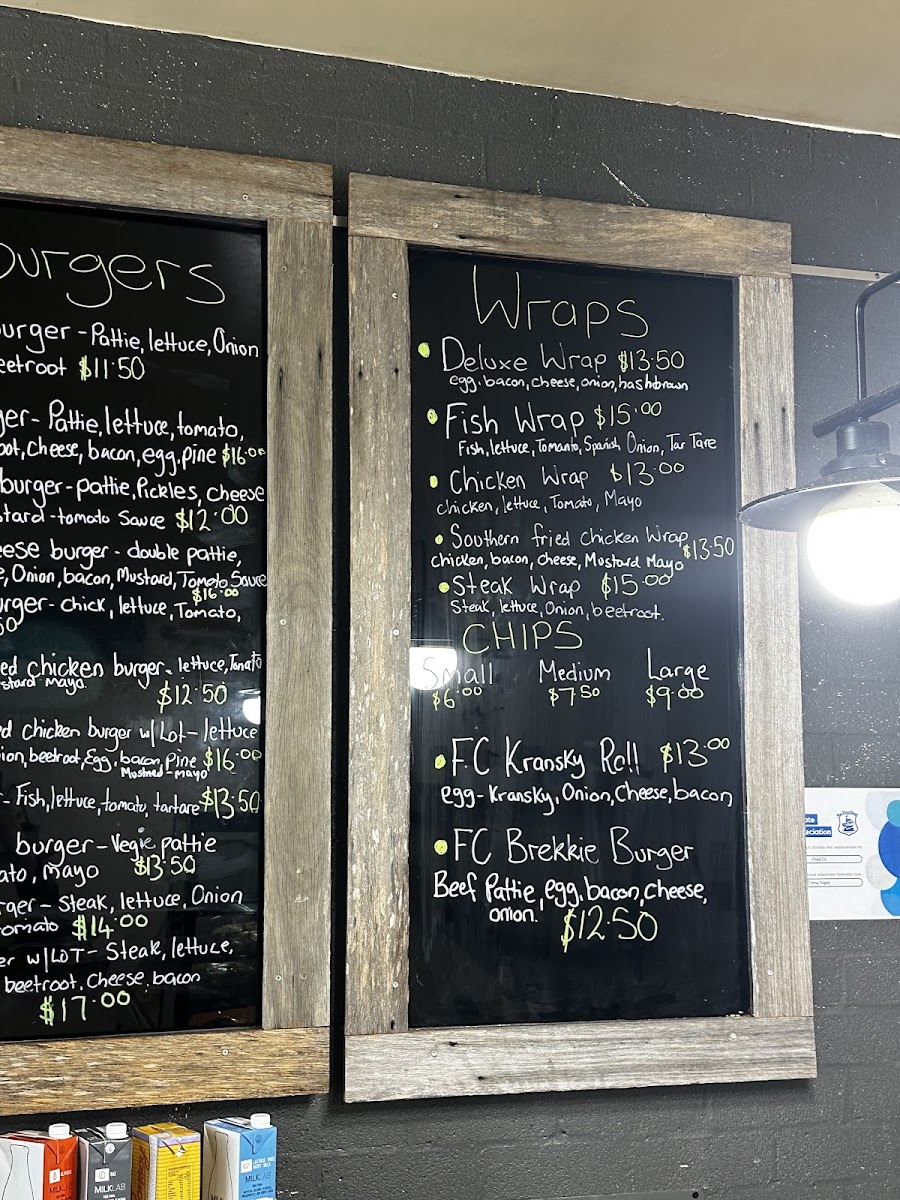 burgers
burger - Pattie, lettuce, Onion
beetroot $11.50
ger - Pattie, lettuce, tomato,
oot, cheese, bacon, egg, pine $16.00
burger - pattie, Pickles, cheese
stard - tomato Sauce $12.00
eese burger - double pattie,
e, Onion, bacon, Mustard, Tomato Sauce
$16.00
urger - chick, lettuce, Tomato,
50
ed chicken burger - lettuce, Tomato
stard Mayo.
$12.50
d chicken burger w/Lot - lettuce
ion, beetroot, Egg, bacon, Pine $16.00
Mustred - mayo
- Fish, lettuce, tomato, tartare $13.50
burger - Vegie pattie
ato, Mayo $13.50
rger - Steak, lettuce, Onion
omato $14.00
er w/LOT - Steak, lettuce,
beetroot, cheese, bacon
$17.00
Wraps
Deluxe Wrap $13.50
egg, bacon, cheese, onion, hashbrown
Fish Wrap $15.00
Fish, lettuce, Tomanto, Spanish Onion, Tar Tare
Chicken Wrap $13.00
chicken, lettuce, Tomato, Mayo
Southern fried chicken Wrap $13.50
chicken, bacon, cheese, Mustard Mayo
Steak Wrap $15.00
Steak, lettuce, Onion, beetroot.
CHIPS
Small Medium Large
$6.00 $7.50 $9.00
FC Kransky Roll $13.00
egg - Kransky, Onion, Cheese, bacon
FC Brekkie Burger
Beef Pattie, egg, bacon, cheese,
onion. $12.50
ate
reciation
MILKLAB
MILKLAB
MILKLAB